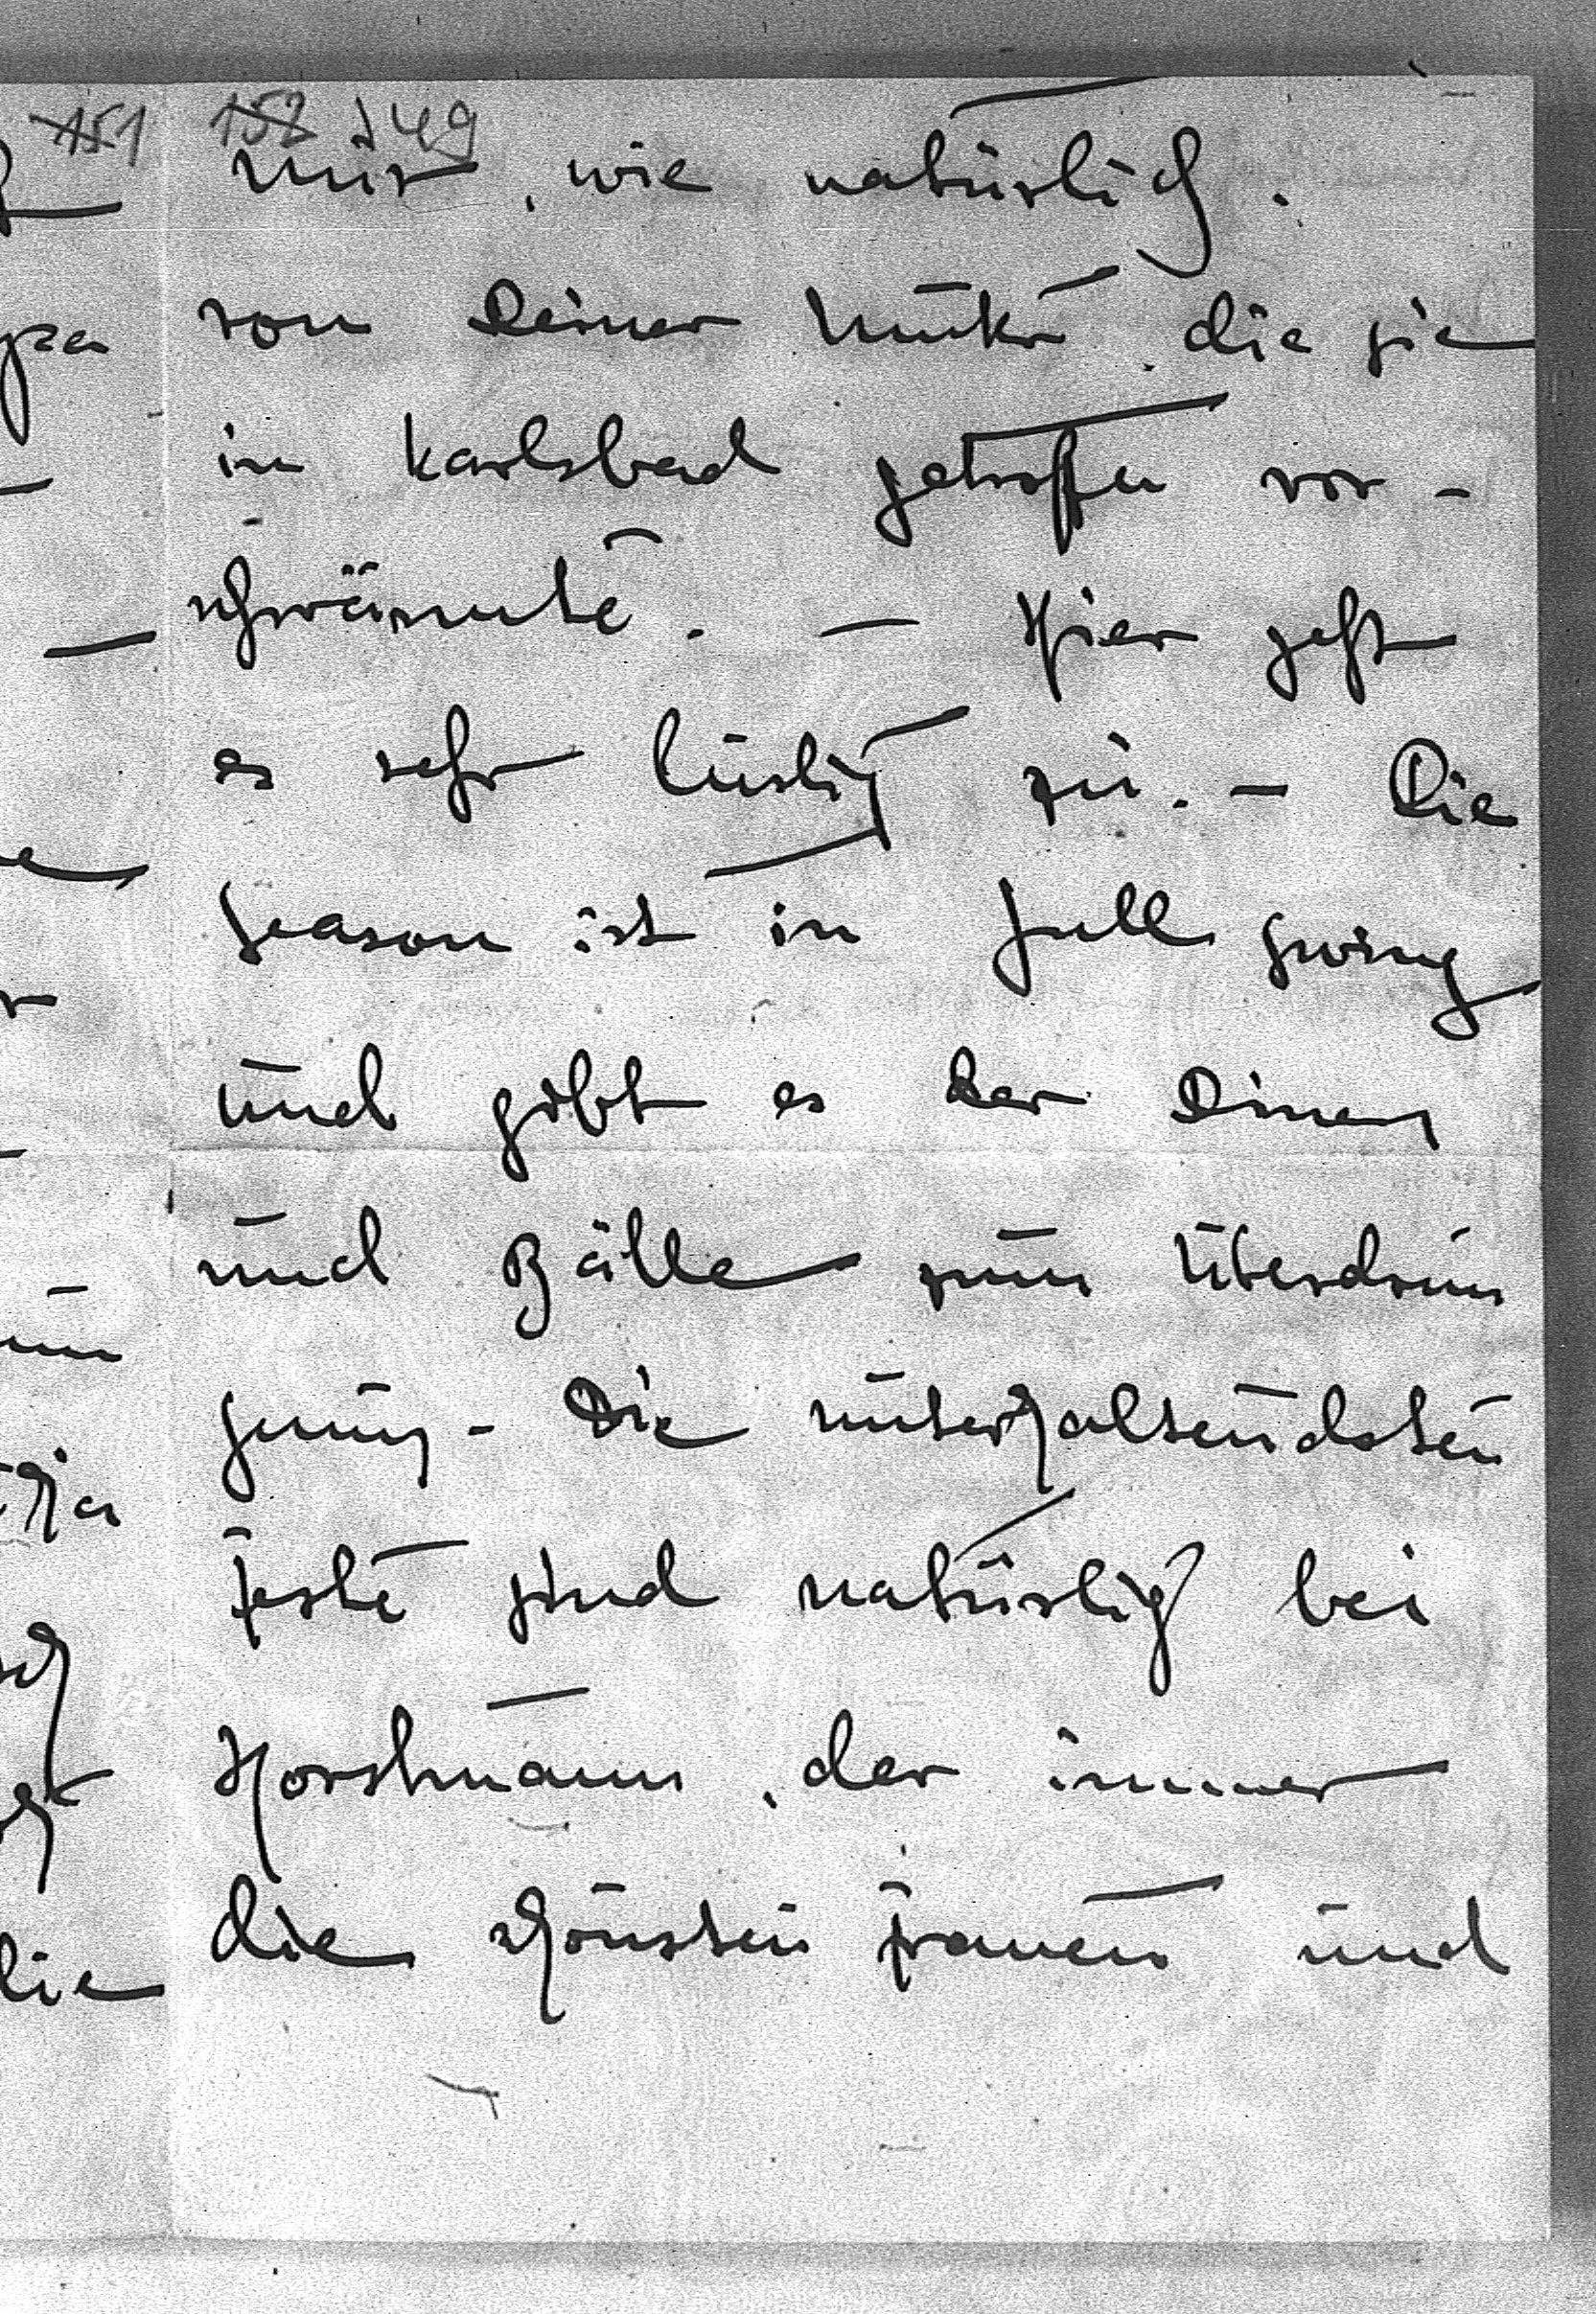 151 152 149
mir, wie natürlich.
von Deiner Mutter, die sie
in Karlsbad getroffen vor-
schwärmte. — Hier geht
es sehr lustig zu. — Die
Season ist in full swing
und gibt es der Diners
und Bälle zum Überdruss
genug - Die unterhaltendsten
Feste sind natürlich bei
Horstmann, der immer
die schönsten Frauen und